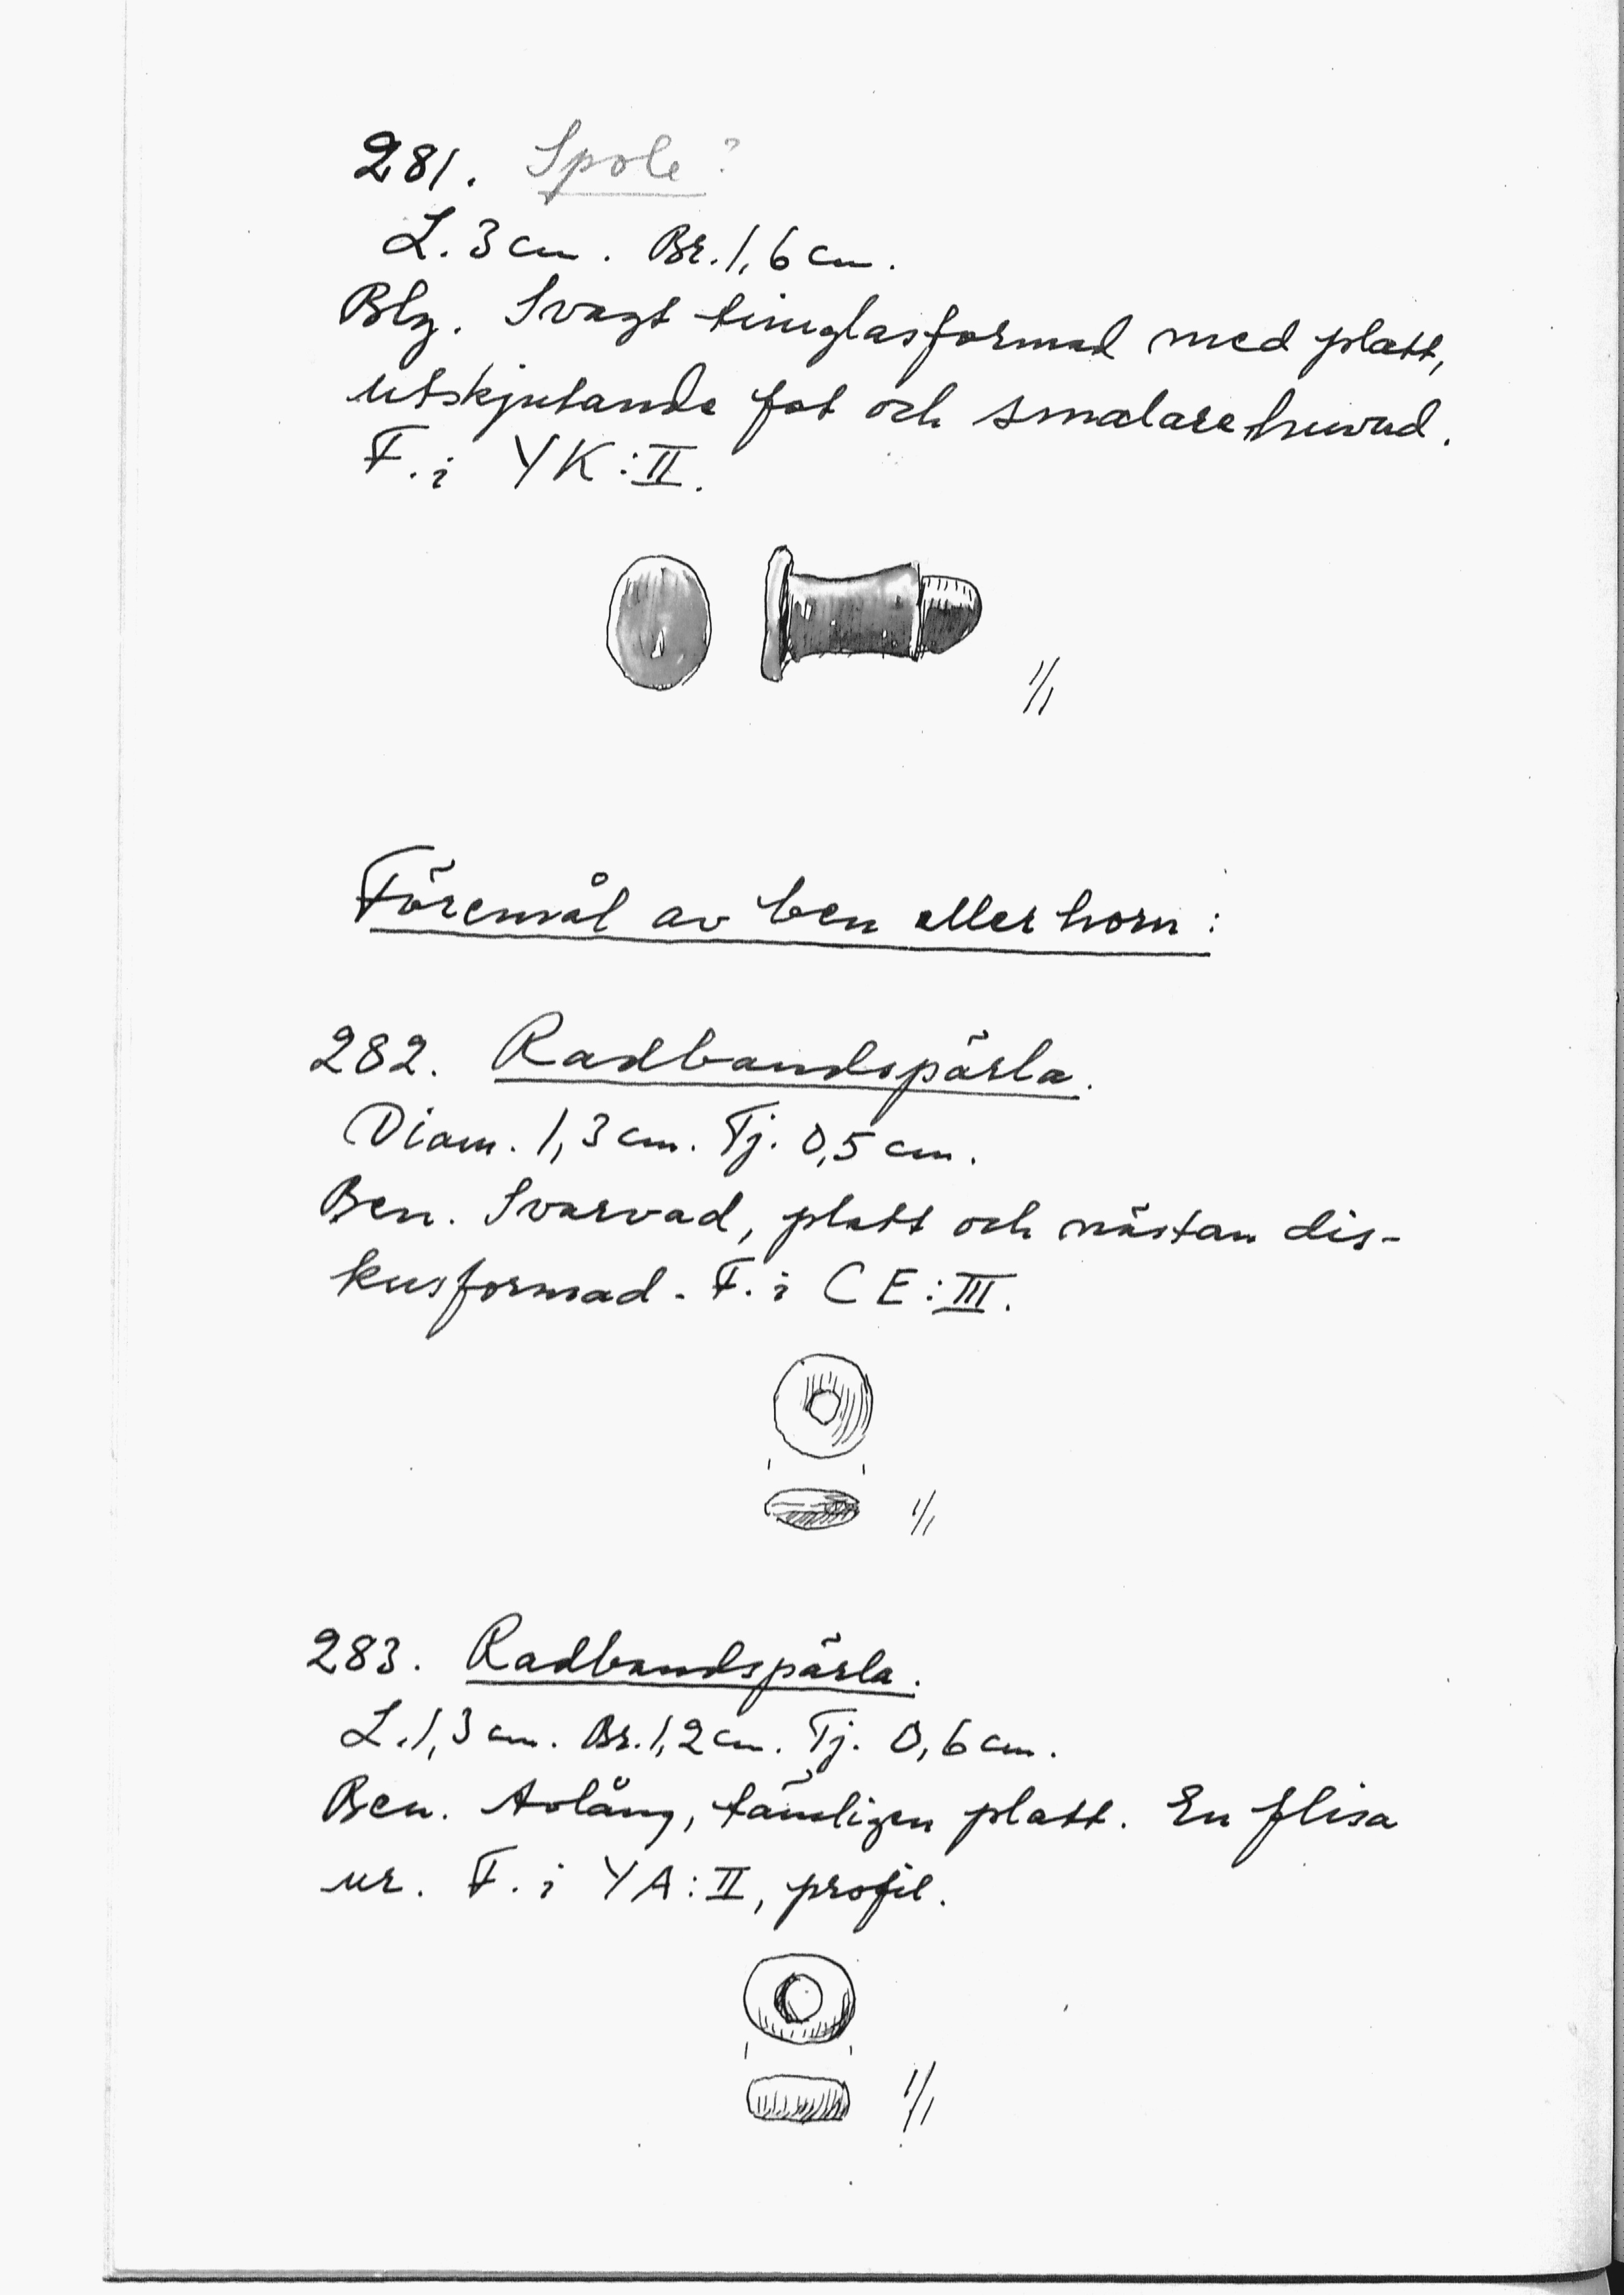 281. Spole?
L. 3 cm. Br. 1,6 cm.
Blg. Svagt timglasformad med platt,
utskjutande fot och smalare huvud.
F. i YK:II.
1/1
Föremål av ben eller horn:
282. Radbandspärla.
Diam. 1,3 cm. Tj. 0,5 cm.
Ben. Svarvad, platt och nästan dis-
kusformad. F. i CE:III.
1/1
283. Radbandspärla.
L. 1,3 cm. Br. 1,2 cm. Tj. 0,6 cm.
Ben. Avlång, tämligen platt. En flisa
ur. F. i YA:II, profil.
1/1